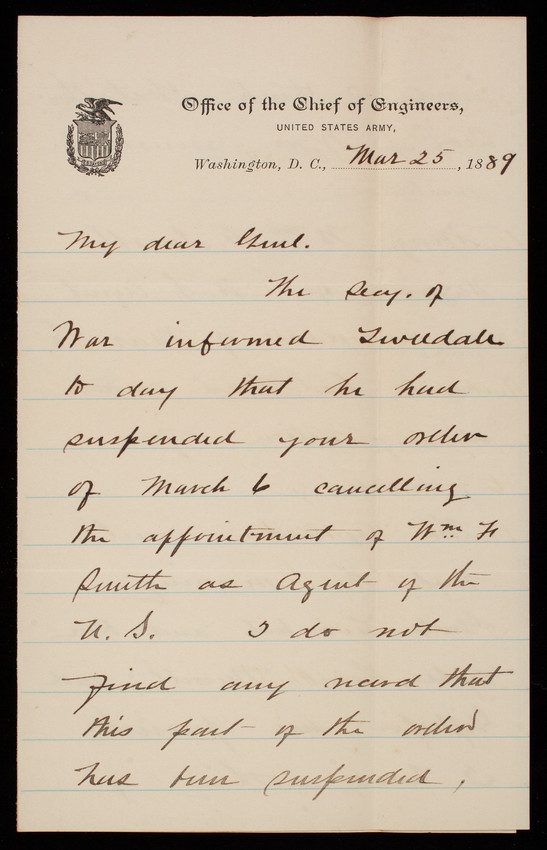 Office of the Chief of Engineers,
UNITED STATES ARMY,
Washington, D. C., Mar 25, 1889
My dear Genl.
The Secy. of
War informed Tweedale
to day that he had
suspended your order
of March 6 cancelling
the appointment of Wm. F
Smith as Agent of the
U. S. I do not
find any record that
this part of the order
has been suspended,